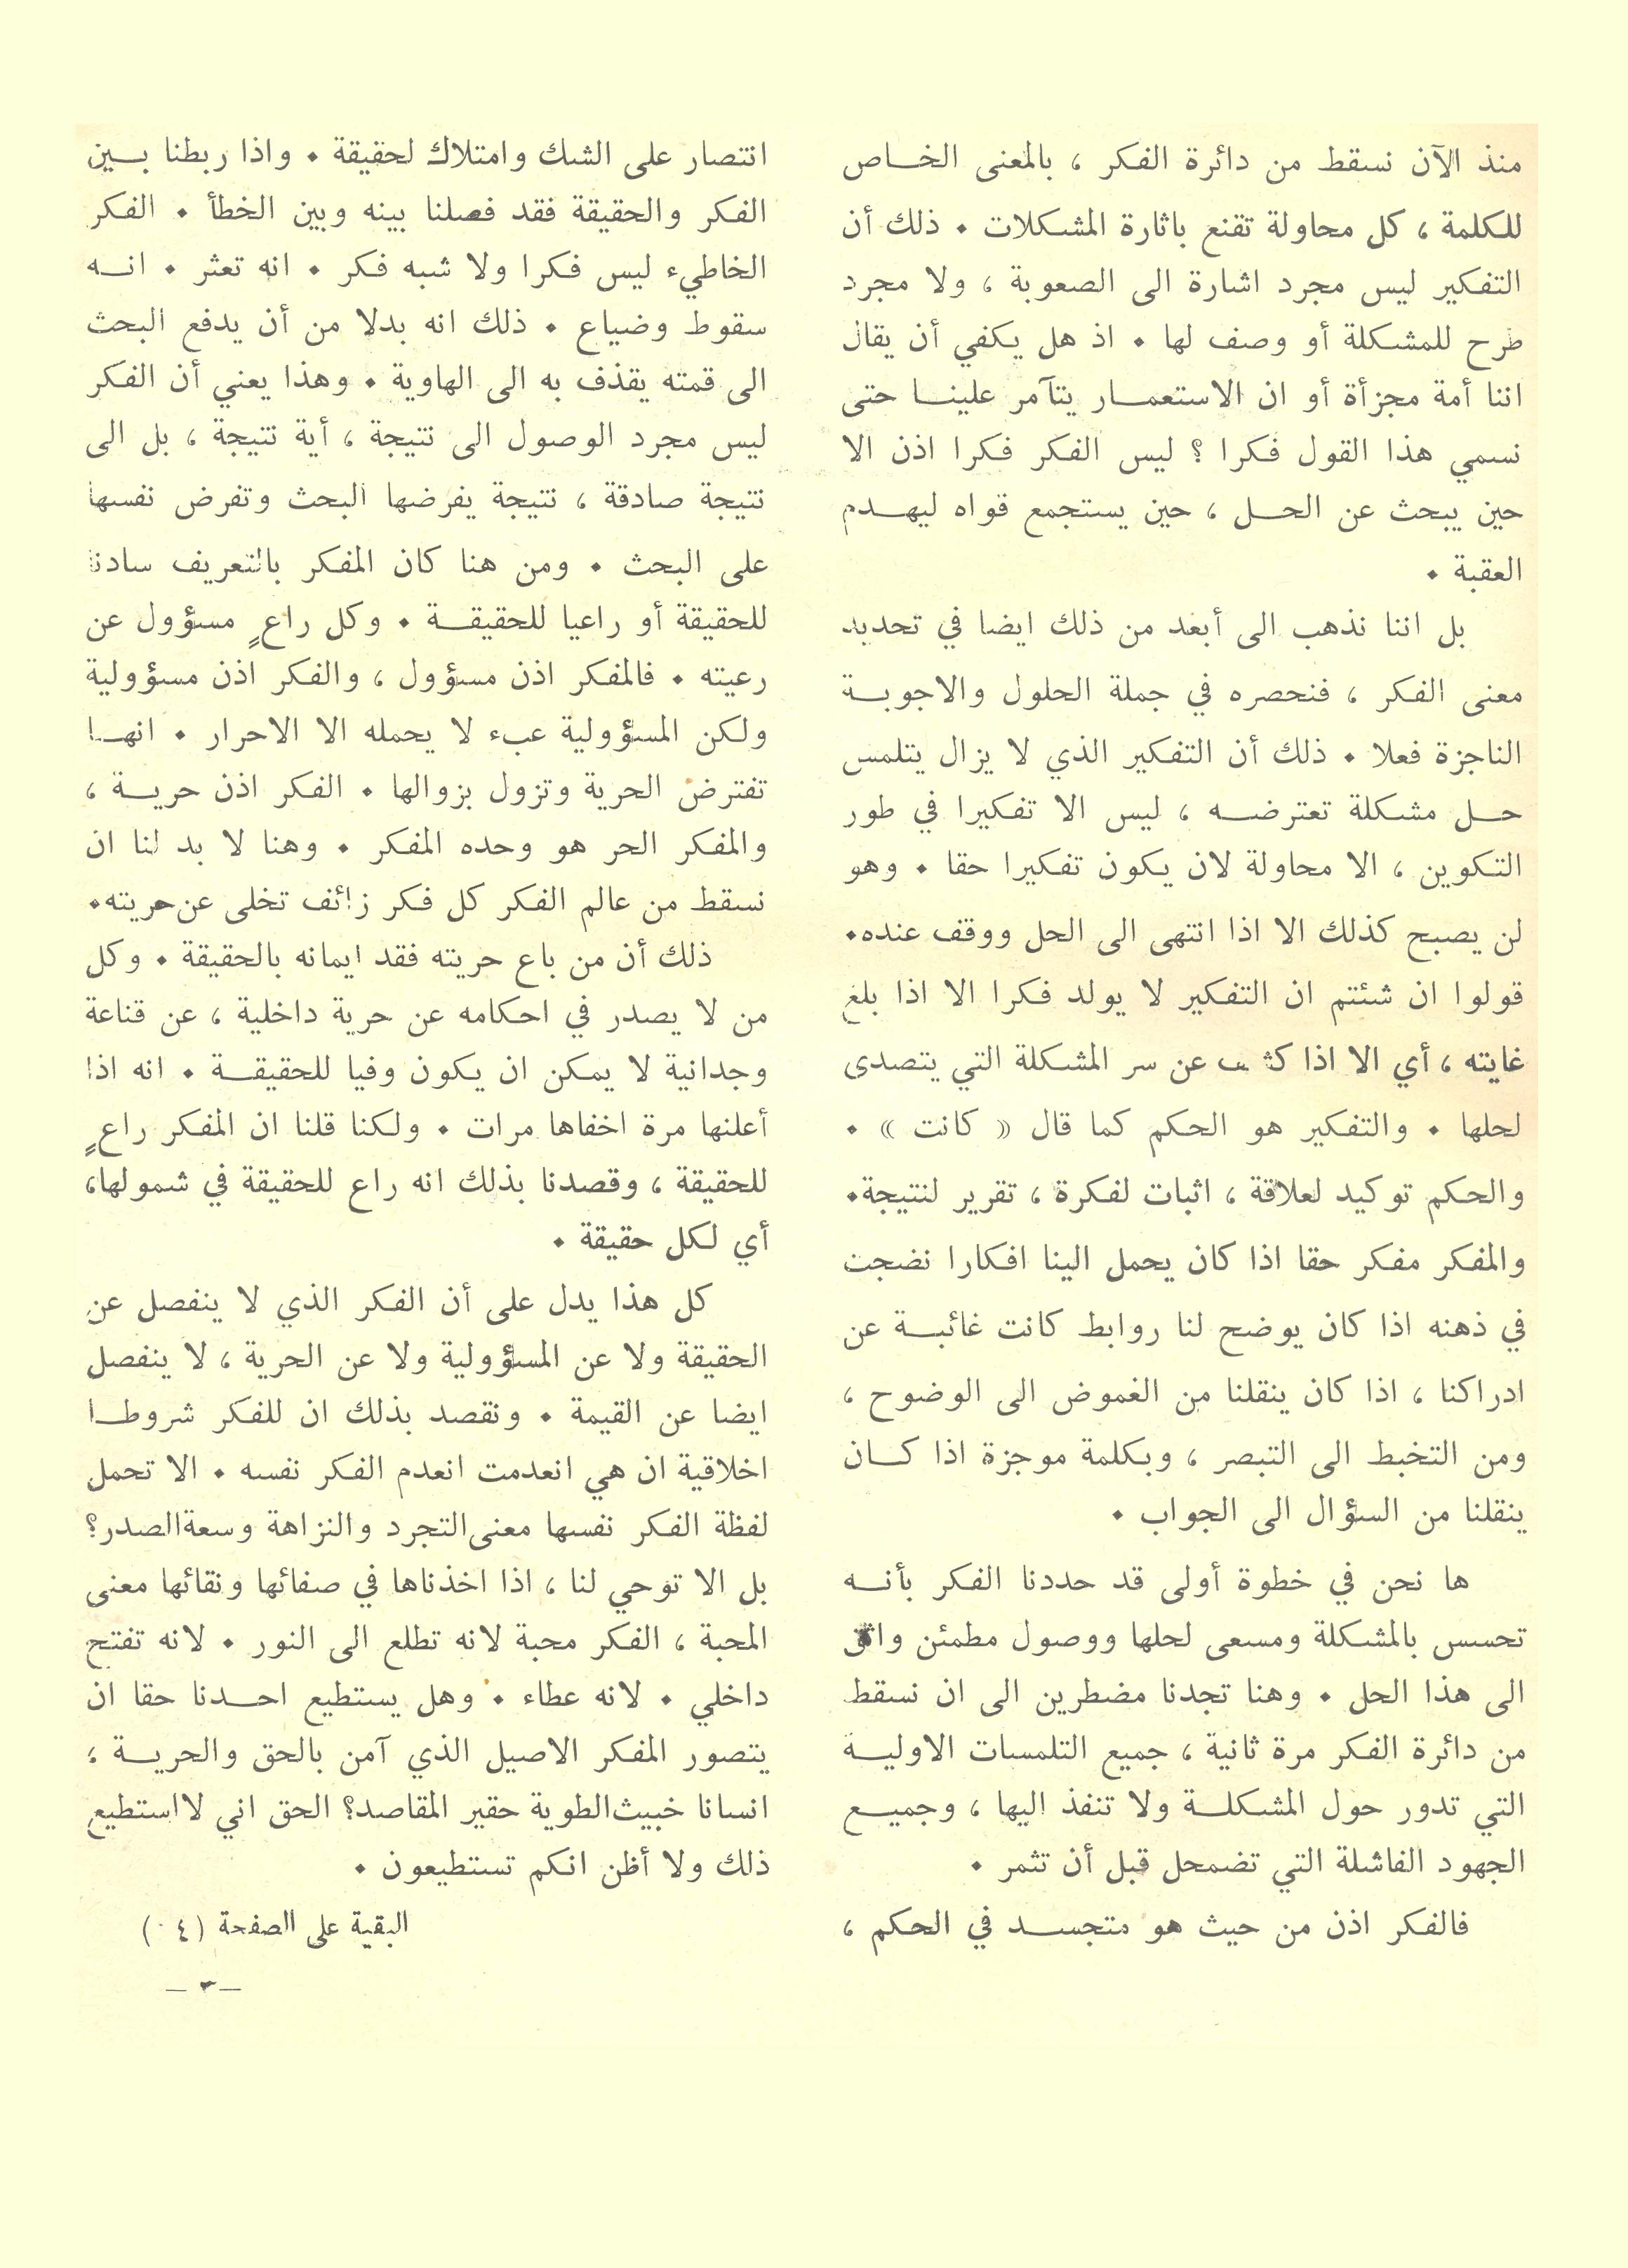 منذ الآن نسقط من دائرة الفكر ، بالمعنى الخاص
للكلمة ، كل محاولة تقنع باثارة المشكلات . ذلك أن
التفكير ليس مجرد اشارة الى الصعوبة ، ولا مجرد
طرح للمشكلة أو وصف لها . اذ هل يكفي أن يقال
اننا أمة مجزأة أو ان الاستعمار يتآمر علينا حتى
نسمي هذا القول فكرا ؟ ليس الفكر فكرا اذن الا
حين يبحث عن الحل ، حين يستجمع قواه ليهدم
العقبة .
بل اننا نذهب الى أبعد من ذلك ايضا في تحديد
معنى الفكر ، فنحصره في جملة الحلول والاجوبة
الناجزة فعلا . ذلك أن التفكير الذي لا يزال يتلمس
حل مشكلة تعترضه ، ليس الا تفكيرا في طور
التكوين ، الا محاولة لان يكون تفكيرا حقا . وهو
لن يصبح كذلك الا اذا انتهى الى الحل ووقف عنده.
قولوا ان شئتم ان التفكير لا يولد فكرا الا اذا بلغ
غايته ، أي الا اذا كشف عن سر المشكلة التي يتصدى
لحلها . والتفكير هو الحكم كما قال « كانت » .
والحكم توكيد لعلاقة ، اثبات لفكرة ، تقرير لنتيجة.
والمفكر مفكر حقا اذا كان يحمل الينا افكارا نضجت
في ذهنه اذا كان يوضح لنا روابط كانت غائبة عن
ادراكنا ، اذا كان ينقلنا من الغموض الى الوضوح ،
ومن التخبط الى التبصر ، وبكلمة موجزة اذا كان
ينقلنا من السؤال الى الجواب .
ها نحن في خطوة أولى قد حددنا الفكر بأنه
تحسس بالمشكلة ومسعى لحلها ووصول مطمئن واثق
الى هذا الحل . وهنا تجدنا مضطرين الى ان نسقط
من دائرة الفكر مرة ثانية ، جميع التلمسات الاولية
التي تدور حول المشكلة ولا تنفذ اليها ، وجميع
الجهود الفاشلة التي تضمحل قبل أن تثمر .
فالفكر اذن من حيث هو متجسد في الحكم ،
انتصار على الشك وامتلاك لحقيقة . واذا ربطنا بين
الفكر والحقيقة فقد فصلنا بينه وبين الخطأ . الفكر
الخاطيء ليس فكرا ولا شبه فكر . انه تعثر . انه
سقوط وضياع . ذلك انه بدلا من أن يدفع البحث
الى قمته يقذف به الى الهاوية . وهذا يعني أن الفكر
ليس مجرد الوصول الى نتيجة ، أية نتيجة ، بل الى
نتيجة صادقة ، نتيجة يفرضها البحث وتفرض نفسها
على البحث . ومن هنا كان المفكر بالتعريف سادنا
للحقيقة أو راعيا للحقيقة . وكل راعٍ مسؤول عن
رعيته . فالمفكر اذن مسؤول ، والفكر اذن مسؤولية
ولكن المسؤولية عبء لا يحمله الا الاحرار . انها
تفترض الحرية وتزول بزوالها . الفكر اذن حرية ،
والمفكر الحر هو وحده المفكر . وهنا لا بد لنا ان
نسقط من عالم الفكر كل فكر زائف تخلى عن حريته.
ذلك أن من باع حريته فقد ايمانه بالحقيقة . وكل
من لا يصدر في احكامه عن حرية داخلية ، عن قناعة
وجدانية لا يمكن ان يكون وفيا للحقيقة . انه اذا
أعلنها مرة اخفاها مرات . ولكنا قلنا ان المفكر راعٍ
للحقيقة ، وقصدنا بذلك انه راع للحقيقة في شمولها،
أي لكل حقيقة .
كل هذا يدل على أن الفكر الذي لا ينفصل عن
الحقيقة ولا عن المسؤولية ولا عن الحرية ، لا ينفصل
ايضا عن القيمة . ونقصد بذلك ان للفكر شروطا
اخلاقية ان هي انعدمت انعدم الفكر نفسه . الا تحمل
لفظة الفكر نفسها معنى التجرد والنزاهة وسعة الصدر؟
بل الا توحي لنا ، اذا اخذناها في صفائها ونقائها معنى
المحبة ، الفكر محبة لانه تطلع الى النور . لانه تفتح
داخلي . لانه عطاء . وهل يستطيع احدنا حقا ان
يتصور المفكر الاصيل الذي آمن بالحق والحرية ،
انسانا خبيث الطوية حقير المقاصد؟ الحق اني لا استطيع
ذلك ولا أظن انكم تستطيعون .
البقية على الصفحة (٤٠)
— ٣ —